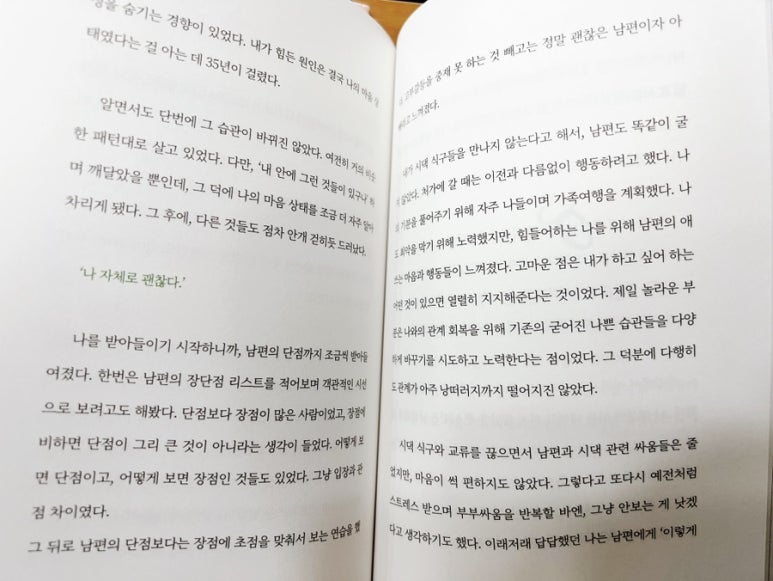 을 숨기는 경향이 있었다. 내가 힘든 원인은 결국 나의 마음 상
태였다는 걸 아는 데 35년이 걸렸다.
알면서도 단번에 그 습관이 바뀌진 않았다. 여전히 거의 비슷
한 패턴대로 살고 있었다. 다만, ‘내 안에 그런 것들이 있구나’ 하
며 깨달았을 뿐인데, 그 덕에 나의 마음 상태를 조금 더 자주 알아
차리게 됐다. 그 후에, 다른 것들도 점차 안개 걷히듯 드러났다.
‘나 자체로 괜찮다.’
나를 받아들이기 시작하니까, 남편의 단점까지 조금씩 받아들
여졌다. 한번은 남편의 장단점 리스트를 적어보며 객관적인 시선
으로 보려고도 해봤다. 단점보다 장점이 많은 사람이었고, 장점에
비하면 단점이 그리 큰 것이 아니라는 생각이 들었다. 어떻게 보
면 단점이고, 어떻게 보면 장점인 것들도 있었다. 그냥 입장과 관
점 차이였다.
그 뒤로 남편의 단점보다는 장점에 초점을 맞춰서 보는 연습을 했
다. 고부갈등을 중재 못 하는 것 빼고는 정말 괜찮은 남편이자 아
빠라고 느껴졌다.
내가 시댁 식구들을 만나지 않는다고 해서, 남편도 똑같이 굴
지 않았다. 처가에 갈 때는 이전과 다름없이 행동하려고 했다. 나
의 기분을 풀어주기 위해 자주 나들이며 가족여행을 계획했다. 나
도 최악을 막기 위해 노력했지만, 힘들어하는 나를 위해 남편의 애
쓰는 마음과 행동들이 느껴졌다. 고마운 점은 내가 하고 싶어 하는
어떤 것이 있으면 열렬히 지지해준다는 것이었다. 제일 놀라운 부
분은 나와의 관계 회복을 위해 기존의 굳어진 나쁜 습관들을 다양
하게 바꾸기를 시도하고 노력한다는 점이었다. 그 덕분에 다행히
도 관계가 아주 낭떠러지까지 떨어지진 않았다.
시댁 식구와 교류를 끊으면서 남편과 시댁 관련 싸움들은 줄
었지만, 마음이 썩 편하지도 않았다. 그렇다고 또다시 예전처럼
스트레스 받으며 부부싸움을 반복할 바엔, 그냥 안보는 게 낫겠
다고 생각하기도 했다. 이래저래 답답했던 나는 남편에게 ‘이렇게